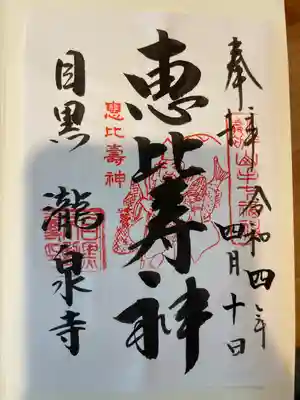 奉拝 令和四年
四月十日
恵比寿神
惠比壽神
目黒 瀧泉寺